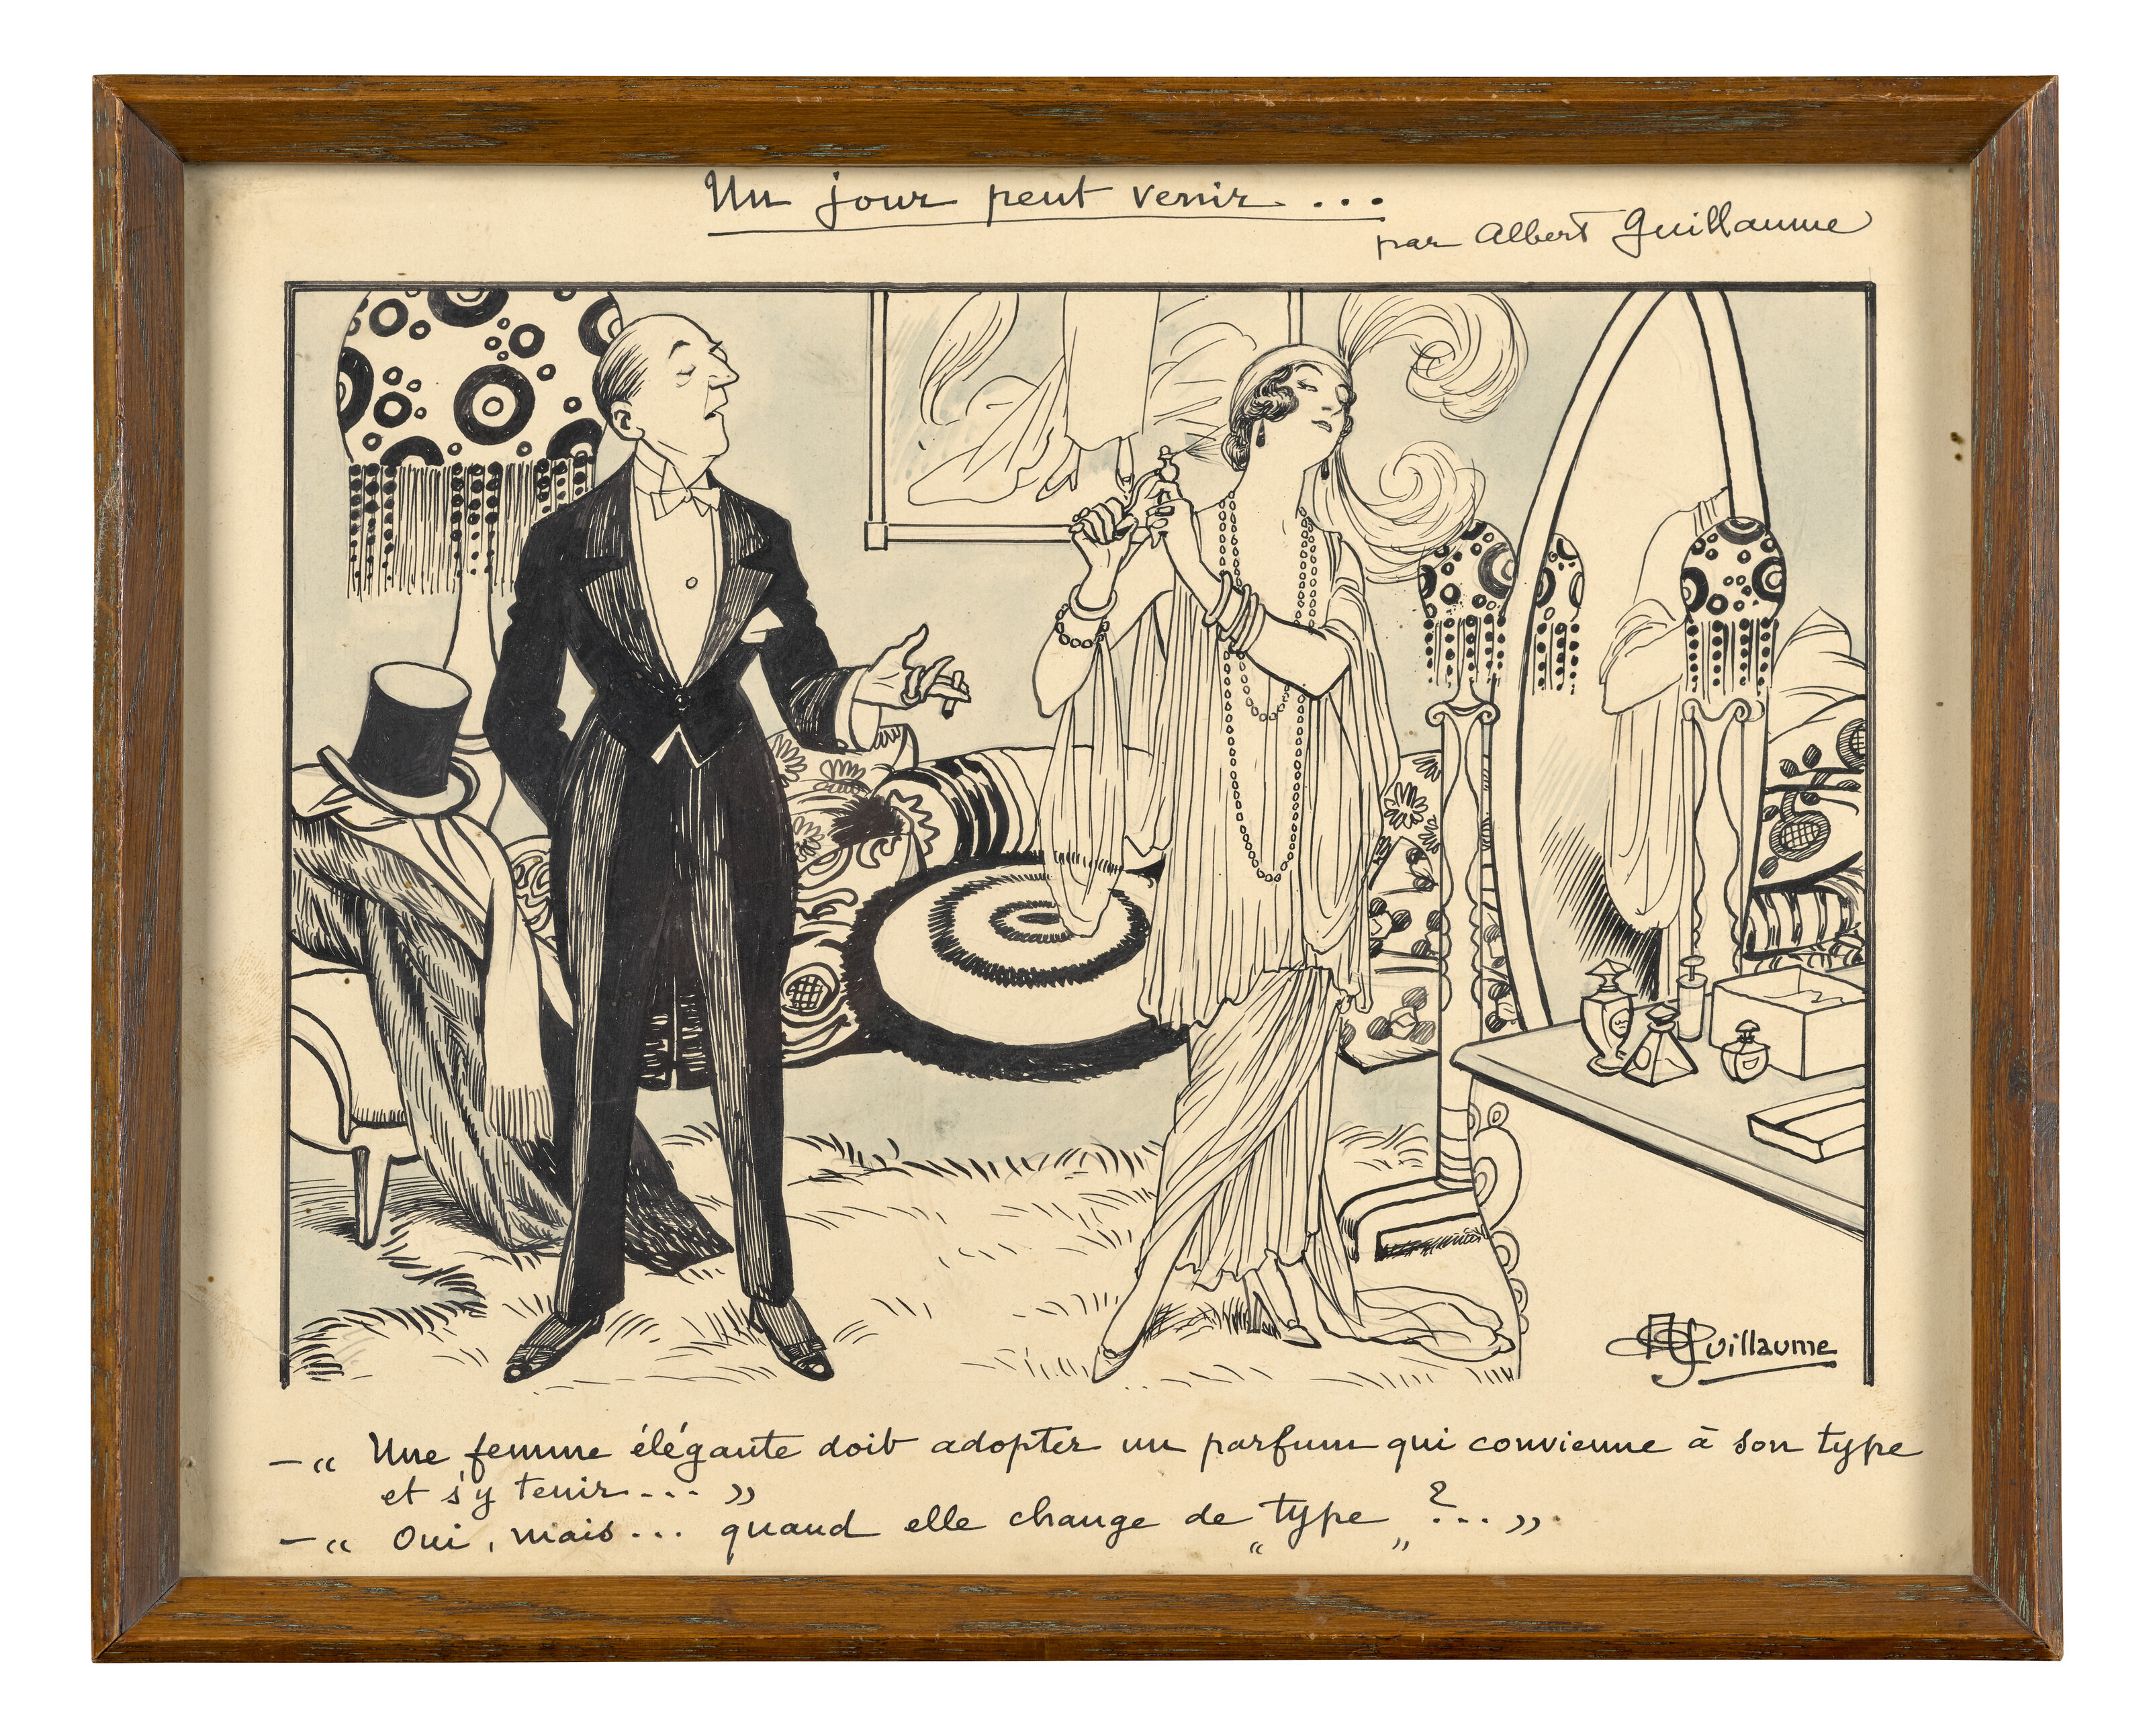 Un jour peut venir...
par Albert Guillaume
AGuillaume
— « Une femme élégante doit adopter un parfum qui convienne à son type
et s'y tenir... »
— « Oui, mais... quand elle change de "type" ?... »